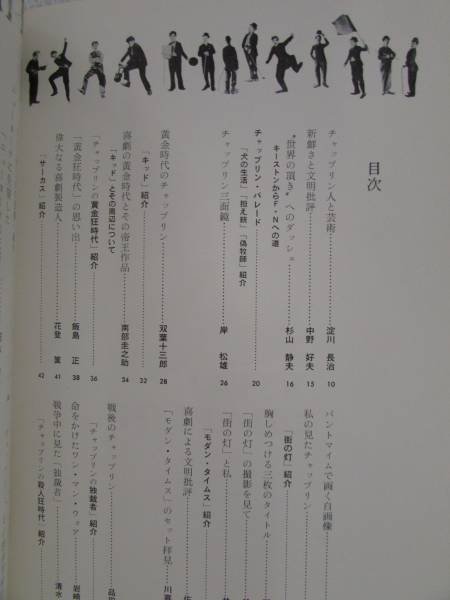 目次
チャップリン人と芸術 淀川長治 10
新鮮さと文明批評 中野好夫 15
"世界の頂き"へのダッシュ 杉山静夫 16
キーストンからF・Nへの道
チャップリン・パレード 20
「犬の生活」「担え銃」「偽牧師」紹介
チャップリン三面鏡 岸松雄 26
黄金時代のチャップリン 双葉十三郎 28
「キッド」紹介 32
喜劇の黄金時代とその帝王作品 南部圭之助 34
「キッド」とその周辺について
「チャップリンの黄金狂時代」紹介 36
「黄金狂時代」の思い出 飯島正 38
偉大なる喜劇製造人 花登筐 41
「サーカス」紹介 42
パントマイムで画く自画像
私の見たチャップリン
「街の灯」紹介
胸しめつける三枚のタイトル
「街の灯」の撮影を見て
「街の灯」と私
「モダン・タイムス」紹介
喜劇による文明批評
「モダン・タイムス」のセット拝見 川喜
戦後のチャップリン
「チャップリンの独裁者」紹介
命をかけたワン・マン・ウォア 岩崎
戦争中に見た「独裁者」 清水
「チャップリンの殺人狂時代」紹介